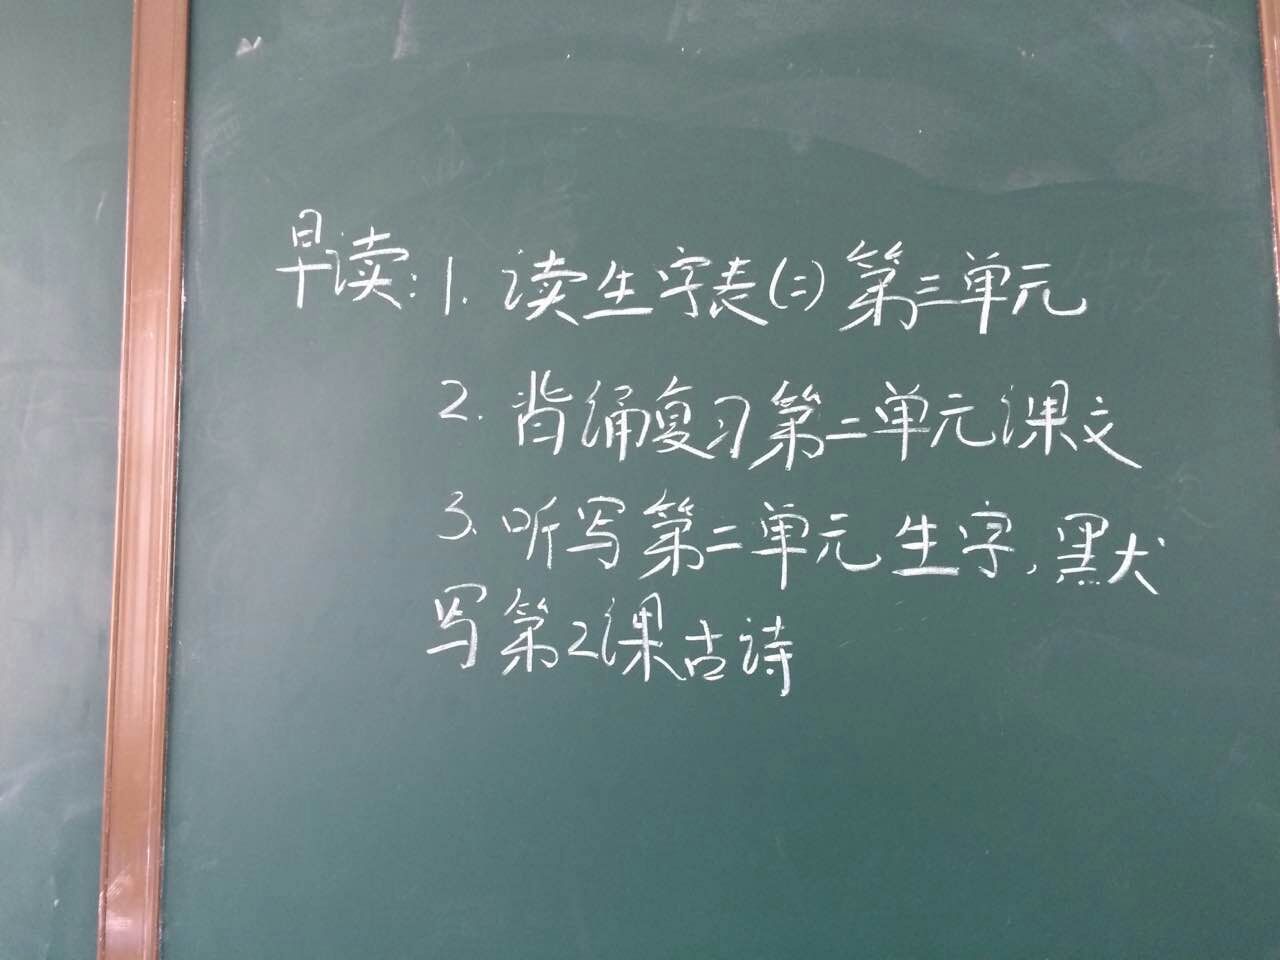 早读:1. 读生字表(二)第三单元
2. 背诵复习第二单元课文
3. 听写第二单元生字,默
写第2课古诗